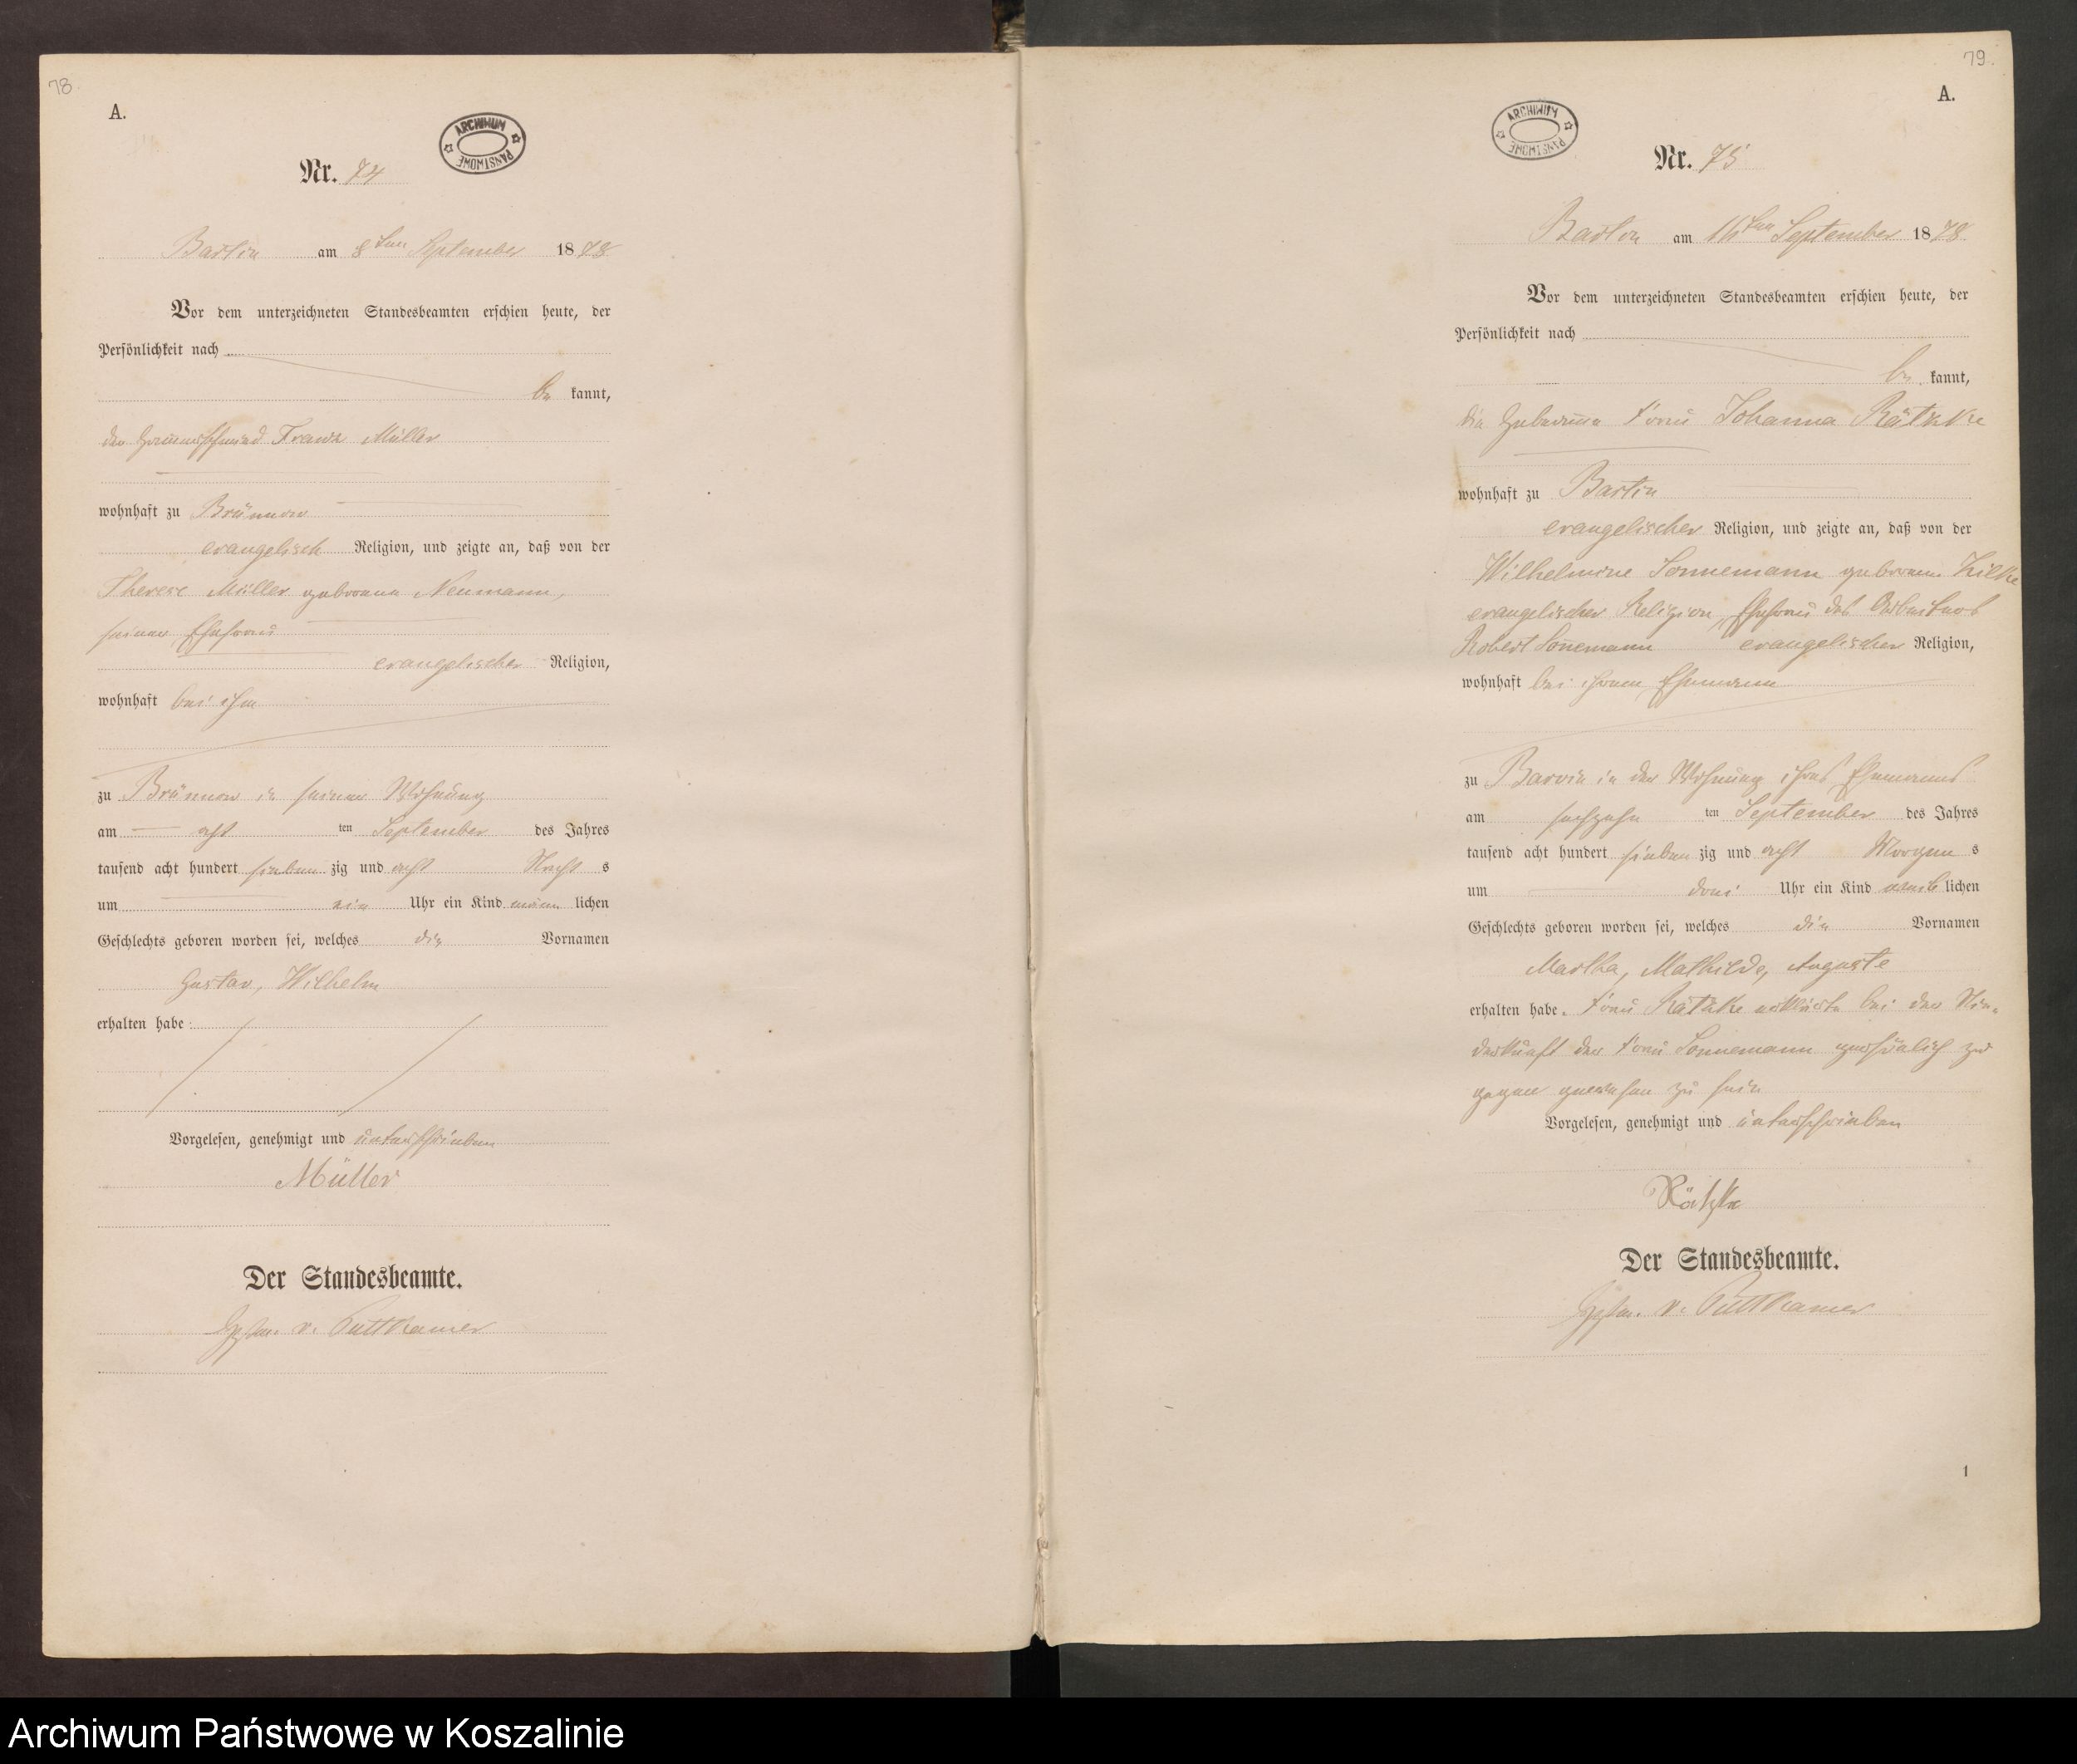 78.
A.
ARCHIWUM PAŃSTWOWE
Nr. 74
Bartin am 8ten September 1878
Vor dem unterzeichneten Standesbeamten erschien heute, der
Persönlichkeit nach
be kannt,
den Hammerschmied Franz Müller
wohnhaft zu Brünnow
evangelisch Religion, und zeigte an, daß von der
Therese Müller geborene Neumann,
seiner Ehefrau
evangelischer Religion,
wohnhaft bei ihm
zu Brünnow in seiner Wohnung
am acht ten September des Jahres
tausend acht hundert sieben zig und acht Nacht s
um ein Uhr ein Kind männ lichen
Geschlechts geboren worden sei, welches die Vornamen
Gustav, Wilhelm
erhalten habe
Vorgelesen, genehmigt und unterschrieben
Müller
Der Standesbeamte.
v. Puttkamer
79.
A.
ARCHIWUM PAŃSTWOWE
Nr. 75
Bartin am 16ten September 1878
Vor dem unterzeichneten Standesbeamten erschien heute, der
Persönlichkeit nach
be kannt,
die Hebamme Frau Johanna Rätzke
wohnhaft zu Bartin
evangelischer Religion, und zeigte an, daß von der
Wilhelmine Sonnemann geborene Zilke
evangelischer Religion, Ehefrau des Arbeiters
Robert Sonnemann evangelischer Religion,
wohnhaft bei ihrem Ehemann
zu Barvin in der Wohnung ihres Ehemanns
am sechzehn ten September des Jahres
tausend acht hundert sieben zig und acht Morgen s
um drei Uhr ein Kind weib lichen
Geschlechts geboren worden sei, welches die Vornamen
Martha, Mathilde, Auguste
erhalten habe. Frau Rätzke erklärte bei der Nie-
derkunft der Frau Sonnemann persönlich zu
gegen gewesen zu sein
Vorgelesen, genehmigt und unterschrieben
Rätzke
Der Standesbeamte.
v. Puttkamer
1
Archiwum Państwowe w Koszalinie